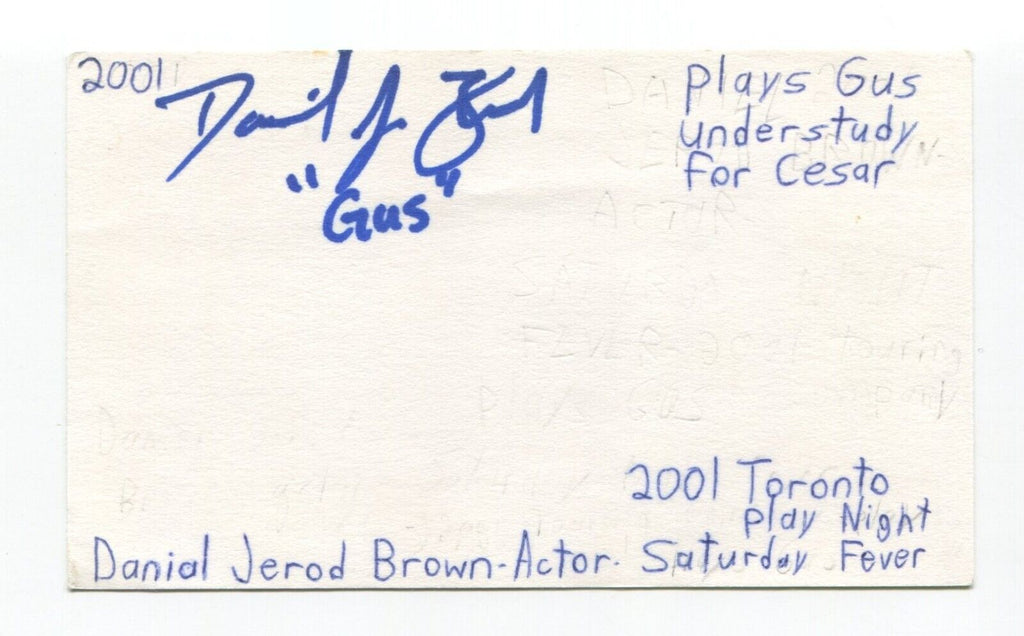 2001
Daniel J. B
"Gus"
plays Gus
understudy
for Cesar
2001 Toronto
play Night
Danial Jerod Brown-Actor. Saturday Fever